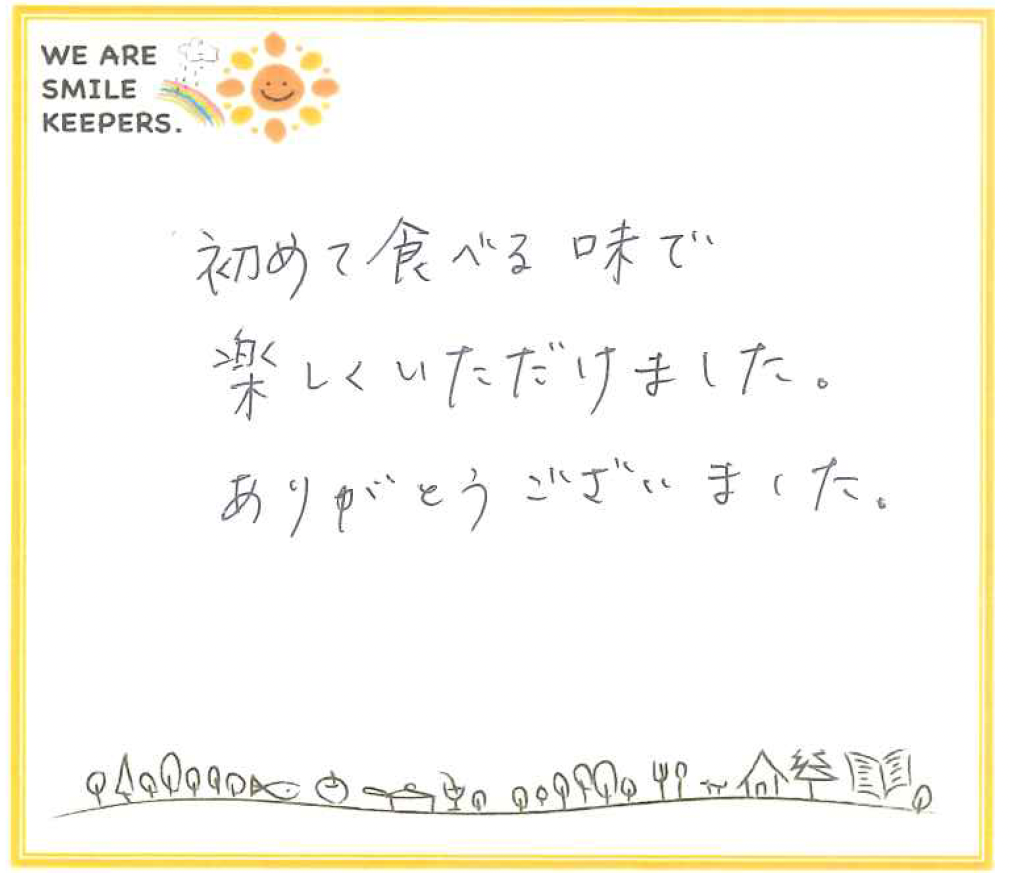 WE ARE
SMILE
KEEPERS.
初めて食べる味で
楽しくいただけました。
ありがとうございました。